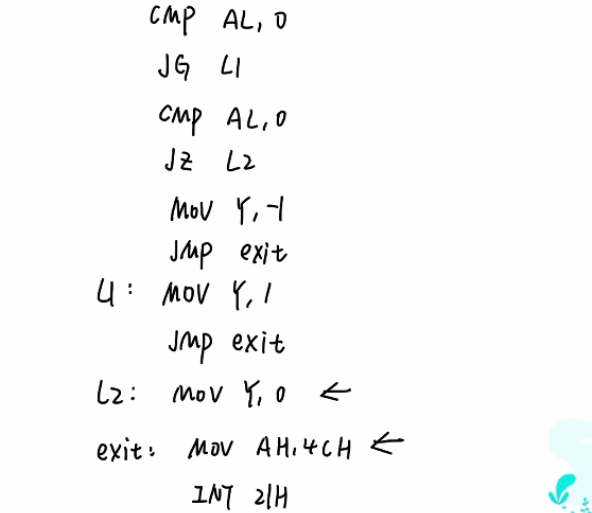 CMP AL, 0
JG L1
CMP AL, 0
JZ L2
MOV Y, -1
JMP exit
L1: MOV Y, 1
JMP exit
L2: MOV Y, 0 ←
exit: MOV AH, 4CH ←
INT 21H